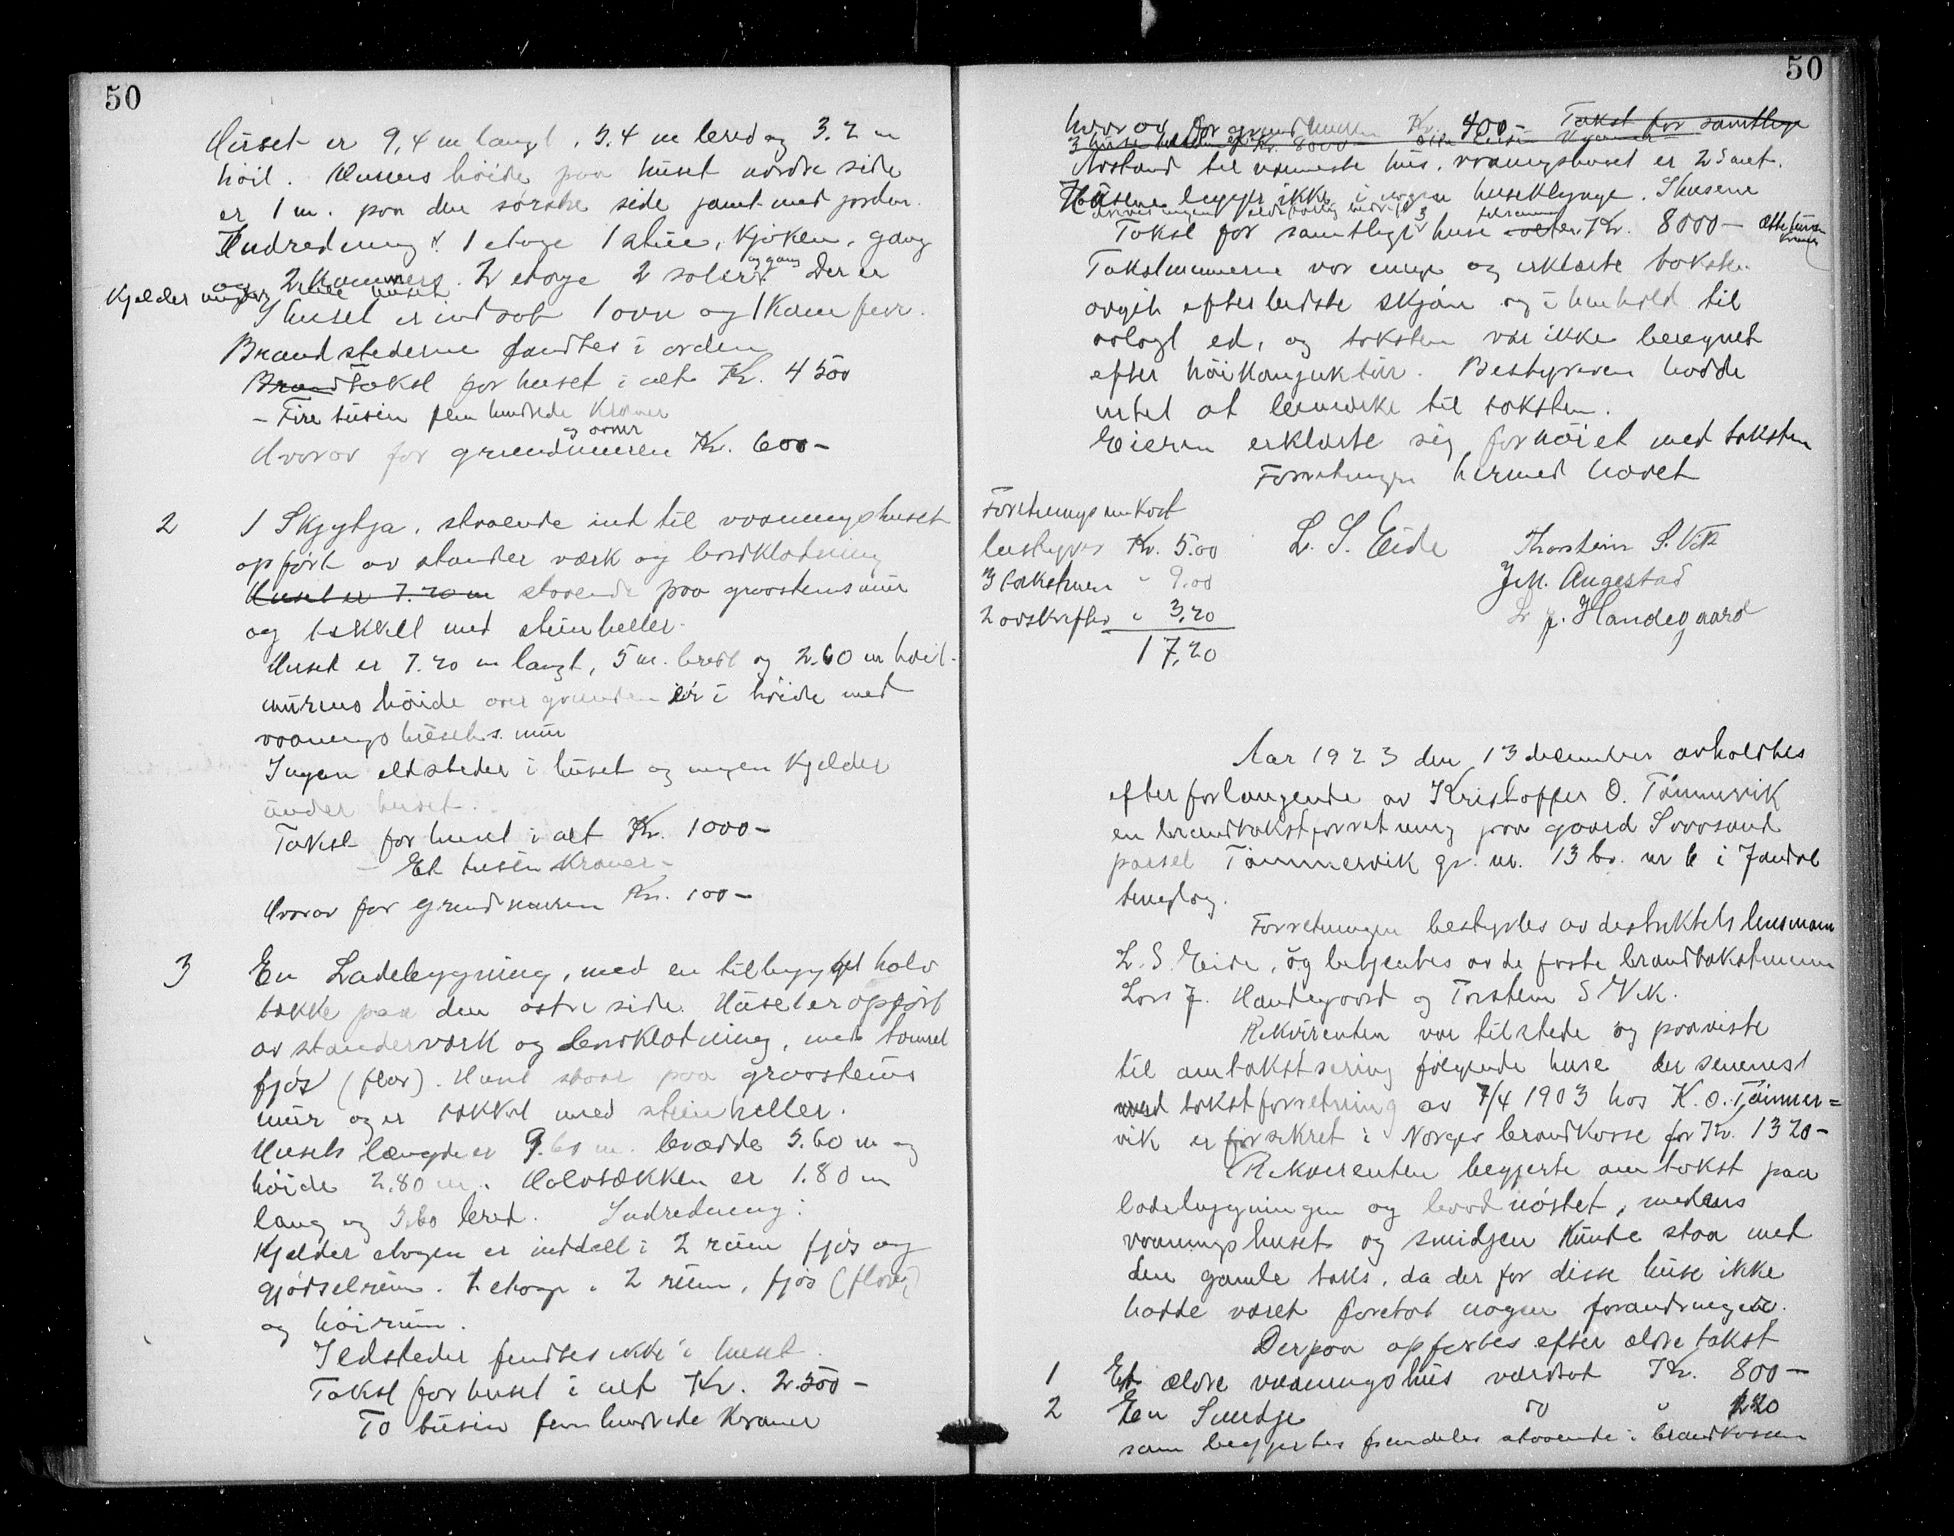 50
Huset er 9,4 m langt, 5.4 m bred og 3.2 m
höit. Murens höide paa huset nordre side
er 1 m. paa den sørske side jamt med jorden.
Indredning 1. 1 etage 1 stue, kjöken, gang
og 2 kammers. 2 etage 2 saler og gang Der er
Kjelder under hele huset
I huset er indsat 1 ovn og 1 Kamfeur.
Brandstederne fandtes i orden
Brandtakst for huset i alt Kr. 4500
- Fire tusin fem hundrede Kroner
Hvorav for grundmuren og ovner Kr. 600-
2 1 Skjytja, staaende ind til vaaningshuset
opført av stander værk og bordklædning
Huset er 7.20 m staaende paa graastensmur
og tækket med stenheller.
Huset er 7.20 m langt, 5 m. bredt og 2.60 m höit-
murens höide over grunden er i höide med
vaaningshusets mur
Ingen eldsteder i huset og ingen Kjelder
under huset.
Takst for huset i alt Kr. 1000-
- Et tusen Kroner -
Hvorav for grundmuren Kr. 100-
3 En Ladebygning, med en tilbygget halv
tække paa den østre side. Huset er opført
av standerværk og bordklædning, med tømret
fjøs (flor). Huset staar paa graastens
mur og er tækket med stenheller.
Husets længde er 9.60 m. bredde 5.60 m og
höide 2.80 m. Halvtækken er 1.80 m
lang og 5.60 bred. Indredning:
Kjelder etagen er inddelt i 2 rum fjøs og
gjødselrum. 1 etage i 2 rum, fjøs (flor)
og höirum.
Ildsteder fandtes ikke i huset.
Takst for huset i alt Kr. 2500-
To tusin fem hundrede Kroner
50
hvorav for grundmuren Kr. 400- Takst for samtlige
3 huse Kr. 8000
Avstand til nærmeste hus, vaaningshuset er 25 met.
Husene ligger ikke i nogen huseklynge. I husene
drives ingen bedrift
Takst for samtlige 3 huse Kr. 8000- Otte tusen kroner
Takstmennene var enige og erklærte taksten
avgit efter bedste skjøn og i henhold til
avlagt ed, og taksten var ikke beregnet
efter höikonjuktur. Bestyreren hadde
intet at bemærke til taksten.
Eieren erklærte sig fornöiet med taksten
Forretningen hermed hævet
Forretningsomkost
bestyrer Kr. 5.00
3 takstmen " 9.00
2 avskrifter " 3,20
17,20
L. S. Eide
Thorstein S. Vik
J. M. Augestad
L. J. Handegaard
Aar 1923 den 13 december avholdtes
efter forlangende av Kristoffer O. Tømmervik
en brandtakstforretning paa gaard Svaasand
parsel Tømmervik gr. nr. 13 br. nr 6 i Jondal
tinglag.
Forretningen bestyrtes av destriktets lensmann
L. S. Eide, og betjentes av de faste brandtakstmenn
Lars J. Handegaard og Torstein S Vik.
Rekvirenten var tilstede og paaviste
til omtakstsering følgende huse der senenest
ved takstforretning av 7/4 1903 hos K. O. Tømmer=
vik er forsikret i Norges brandkasse for Kr. 1320-
Rekvirenten begjerte omtakst paa
ladebygningen og baadnöstet, medens
vaaningshuset og smidjen kunde staa med
den gamle takst, da der for disse huse ikke
hadde været foretat nogen forandringer.
Derpaa opførtes efter ældre takst
1 Et ældre vaaningshus værdsat Kr. 800-
2 En Smidje do " 120
som begjertes fremdeles staaende i brandkassen